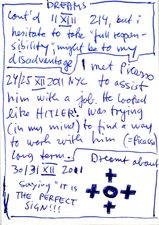 DREAMS
cont'd 11 XII 214, but i
hesitate to take "full respon-
sibility", might be to my
disadvantage. I met Picasso
24/25 XII 2011 NYC to assist
him with a job. He looked
like HITLER. I was trying
(in my mind) to find a way
to work with him (=Picasso)
long term. Dreamt about
30/31 XII 2011
saying "IT IS
THE PERFECT
SIGN!!!